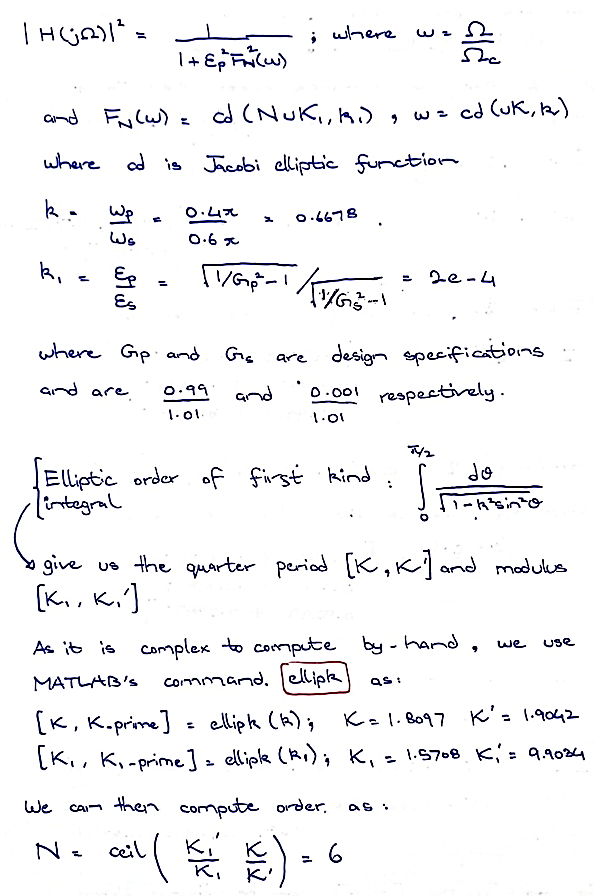 |H(jΩ)|² = 1 / (1 + εp² F_N²(ω)) ; where ω = Ω/Ωc
and F_N(ω) = cd (NuK₁, k₁) , ω = cd (uK, k)
where cd is Jacobi elliptic function
k = ωp/ωs = 0.4π/0.6π = 0.6678 .
k₁ = εp/εs = √(1/Gp² - 1) / √(1/Gs² - 1) = 2e-4
where Gp and Gs are design specifications
and are 0.99/1.01 and 0.001/1.01 respectively.
Elliptic order of first kind : ∫₀^(π/2) dθ / √(1 - k² sin²θ)
integral
give us the quarter period [K, K'] and modulus
[K₁, K₁']
As it is complex to compute by-hand, we use
MATLAB's command. ellipk as:
[K, K-prime] = ellipk (k); K = 1.8097 K' = 1.9042
[K₁, K₁-prime] = ellipk (k₁); K₁ = 1.5708 K₁' = 9.9034
We can then compute order. as :
N = ceil ( K₁'/K₁ K/K' ) = 6